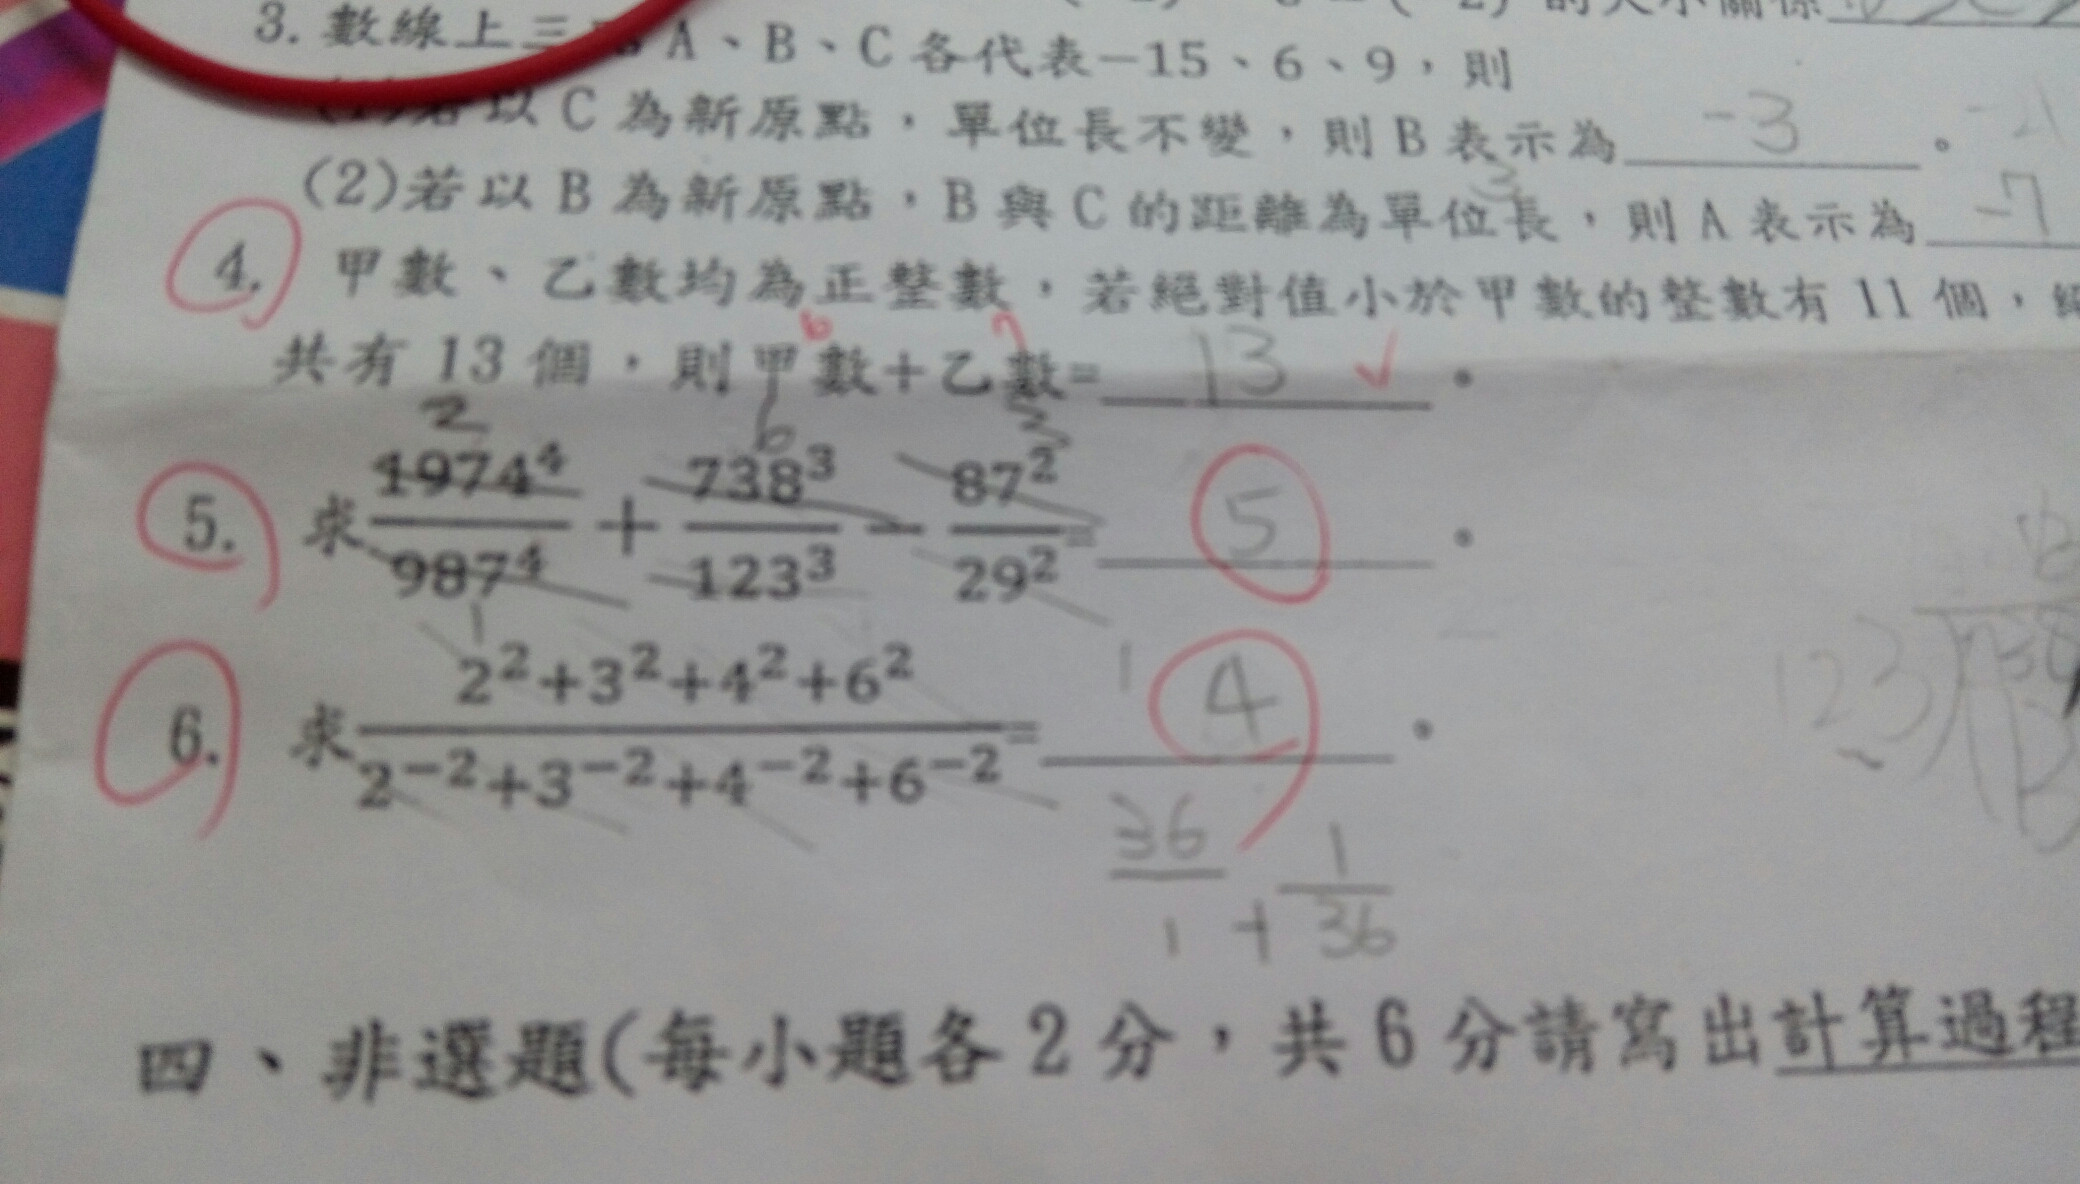 的大小關係
3. 數線上三 A、B、C各代表−15、6、9，則
(1)若以C為新原點，單位長不變，則B表示為 -3 。
3
(2)若以B為新原點，B與C的距離為單位長，則A表示為 -7
4. 甲數、乙數均為正整數，若絕對值小於甲數的整數有11個，
6 7
共有13個，則甲數+乙數= 13 ✓ 。
2 6 3
5. 求 1974⁴/987⁴ + 738³/123³ − 87²/29² = 5 。
1
6. 求 2²+3²+4²+6² / 2⁻²+3⁻²+4⁻²+6⁻² = 4 。
36 1
1 + 36
123
四、非選題(每小題各2分，共6分請寫出計算過程